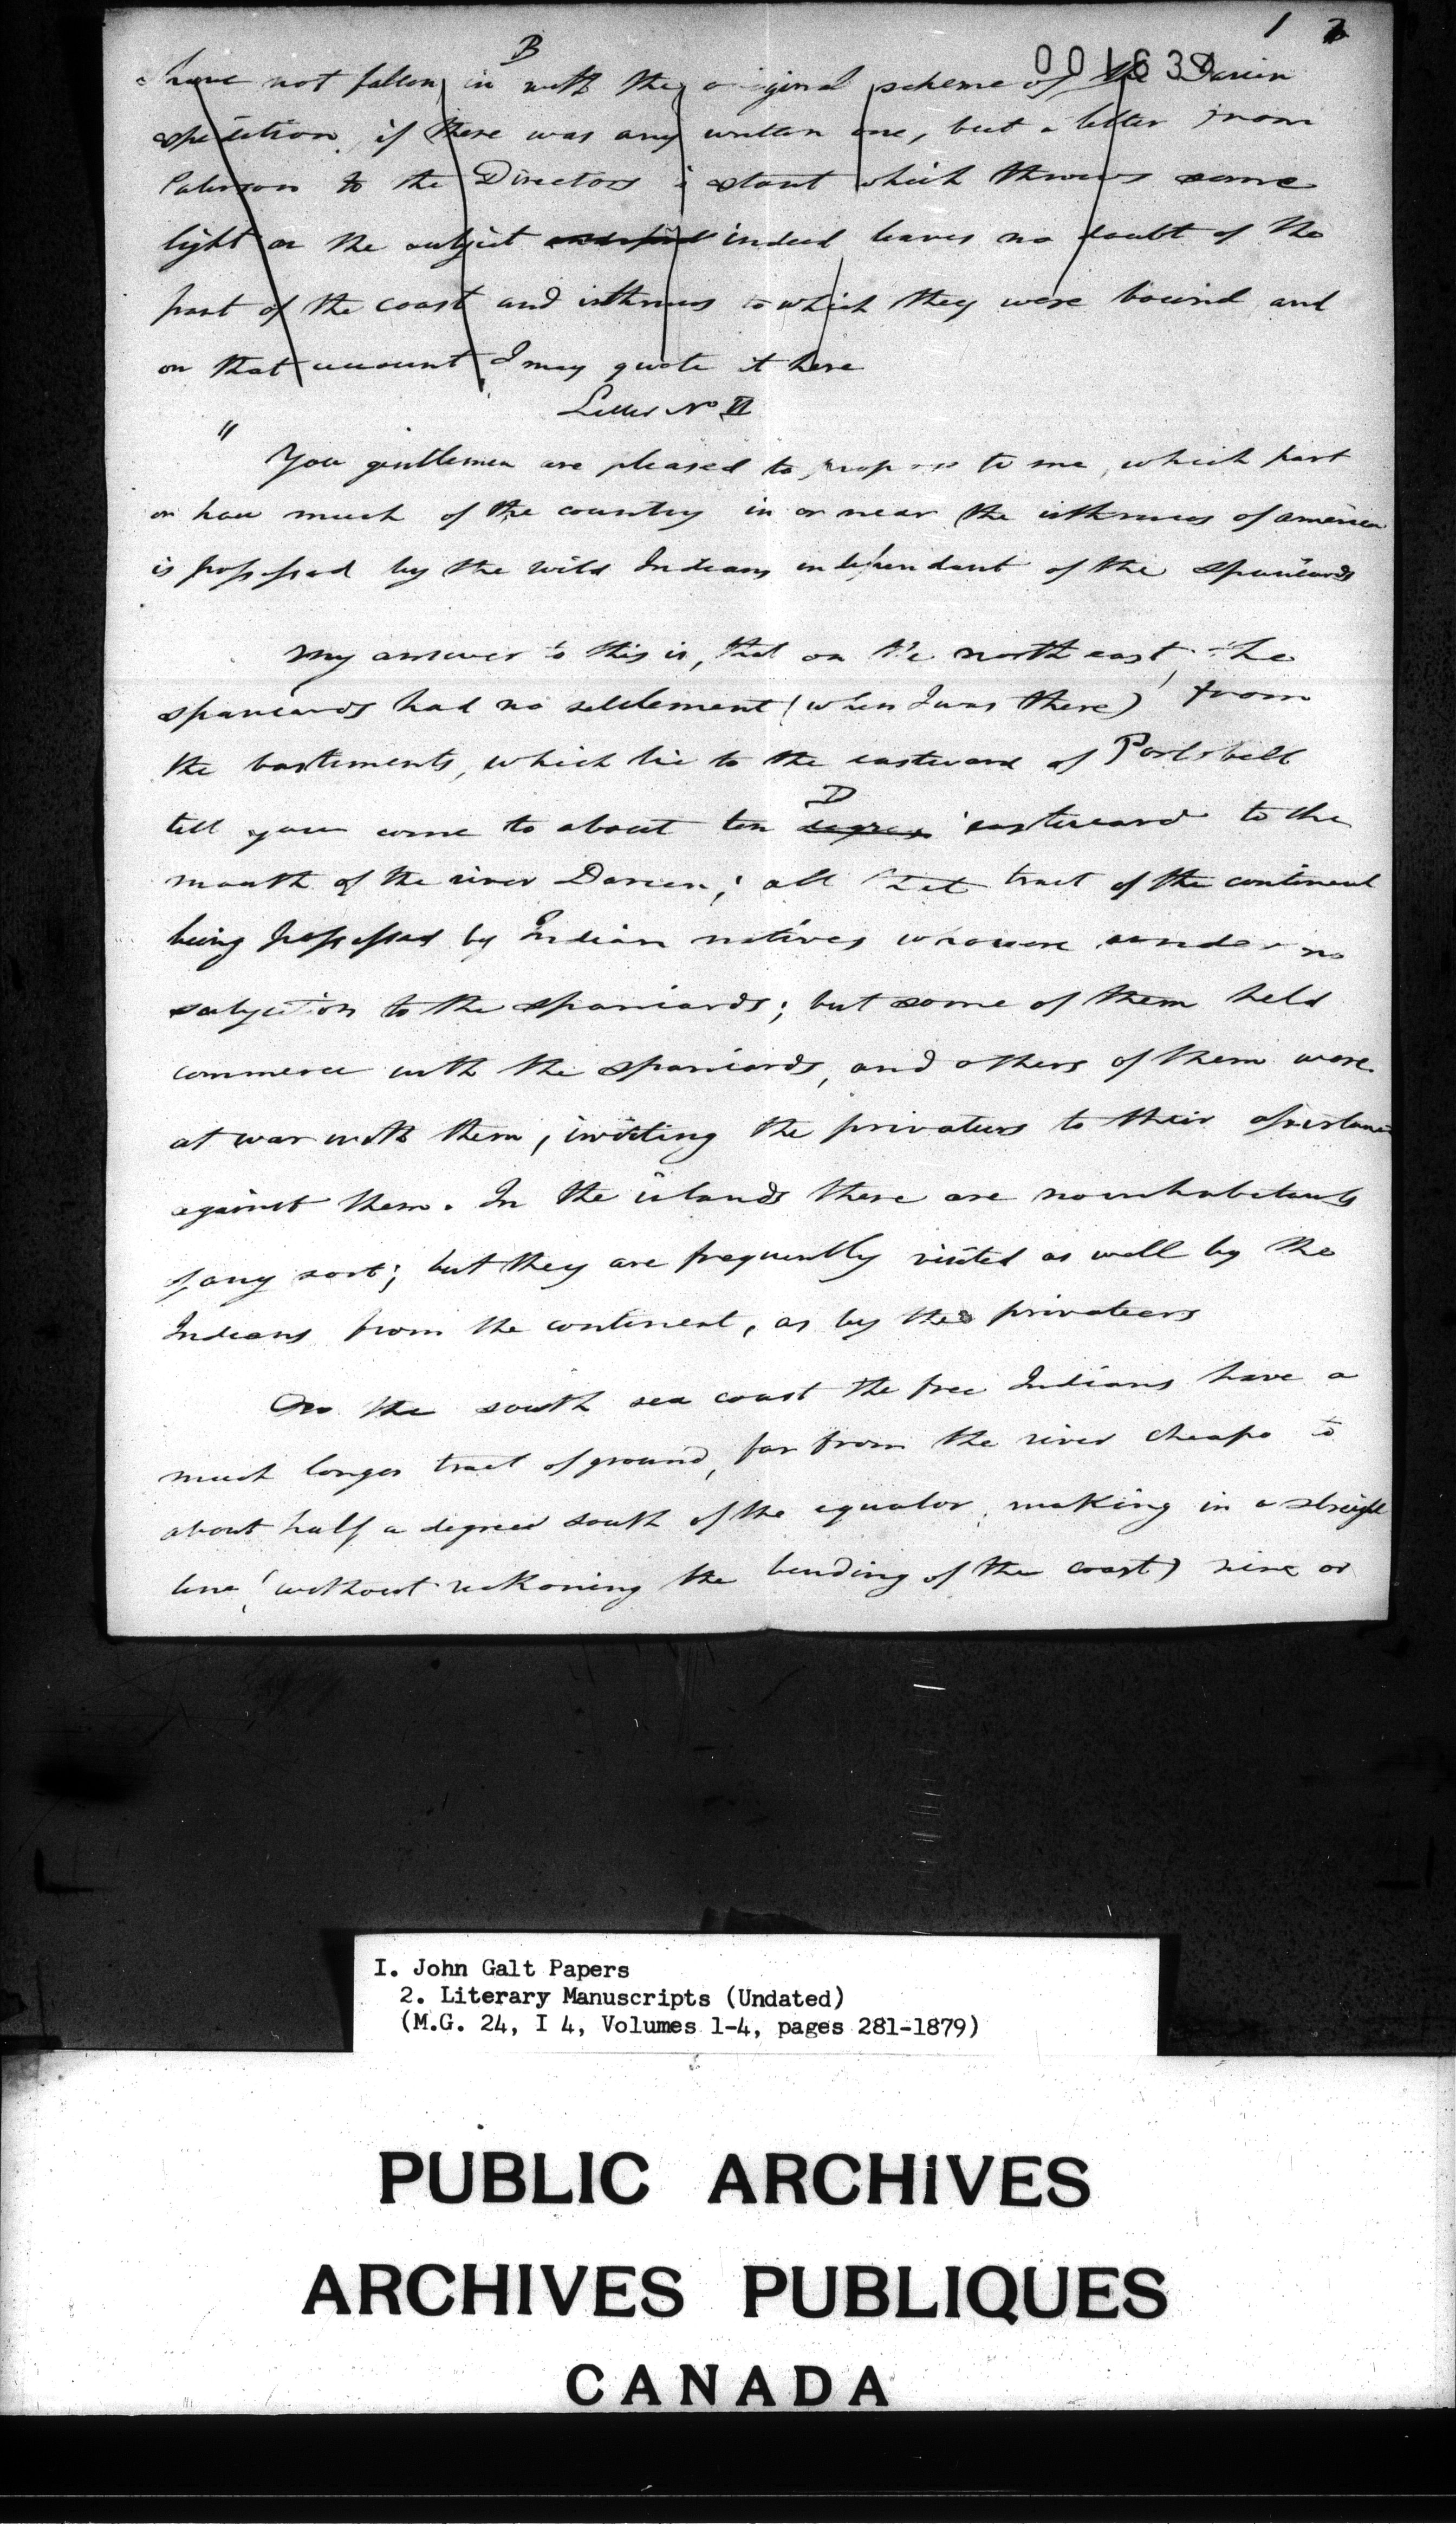 1 2
B
001639
have not fallen in with the original scheme of the Darien
expedition, if there was any written one, but a letter from
Paterson to the Directors is extant which throws some
light on the subject indeed leaves no doubt of the
part of the coast and isthmus to which they were bound and
on that account I may quote it here
Letter No II
" You gentlemen are pleased to propose to me, which part
or how much of the country in or near the isthmus of america
is possessed by the wild Indians independant of the Spaniards
My answer to this is, that on the north east, the
Spaniards had no settlement (when I was there) from
the bastiments, which lie to the eastward of Portobell
D
till you come to about ten degrees eastward to the
mouth of the river Darien; all that tract of the continent
being possessed by Indian natives who were under no
subjection to the Spaniards; but some of them held
commerce with the Spaniards, and others of them were
at war with them, inviting the privateers to their assistance
against them. In the islands there are no inhabitants
of any sort; but they are frequently visited as well by the
Indians from the continent, as by the privateers
On the south sea coast the free Indians have a
much longer tract of ground, for from the river cheapo to
about half a degree south of the equator, making in a streight
line (without reckoning the bending of the coast) nine or
I. John Galt Papers
2. Literary Manuscripts (Undated)
(M.G. 24, I 4, Volumes 1-4, pages 281-1879)
PUBLIC ARCHIVES
ARCHIVES PUBLIQUES
CANADA